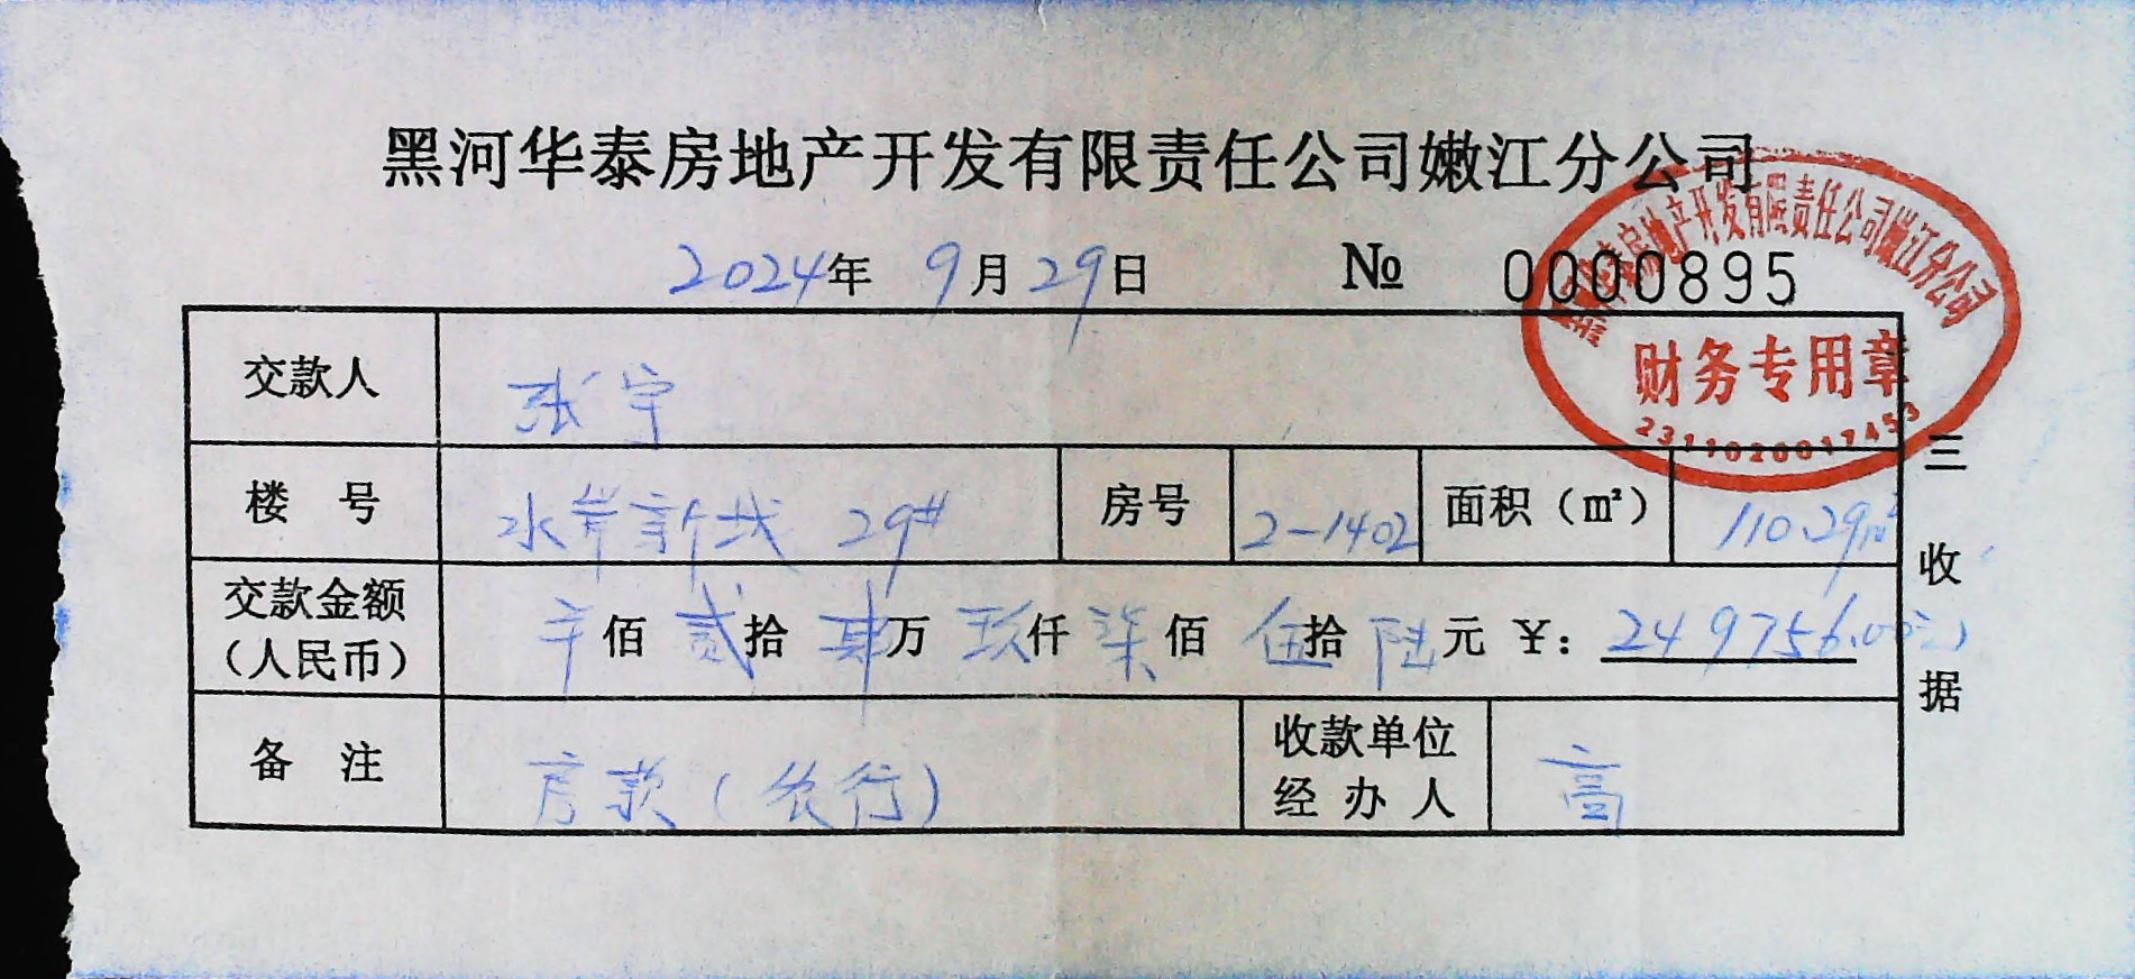 黑河华泰房地产开发有限责任公司嫩江分公司
2024年 9月29日 № 0000895
交款人 张宇
楼 号 水岸新城 29# 房号 2-1402 面积（㎡） 110.29m²
交款金额（人民币） 佰 贰拾 肆万 玖仟 柒佰 伍拾 陆元 ￥: 249756.00元
备 注 房款（农行） 收款单位经办人 高
三 收 据
房地产开发有限责任公司嫩江分公司
财务专用章
2311020017453